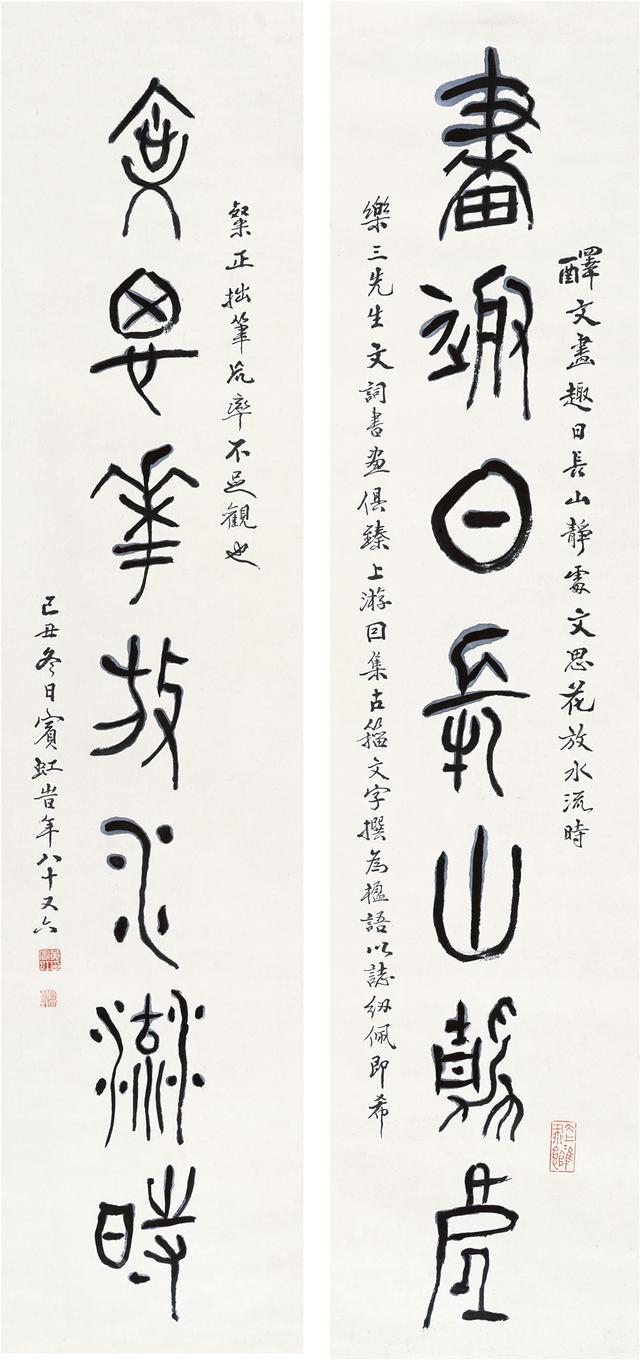 醳文畫趣日長山靜處文思花放水流時
畫趣日長山靜處
樂三先生文詞書画俱臻上游囙集古籀文字撰為楹語以誌紉佩即希
粲正拙筆荒率不足觀也
文思花放水流時
己丑冬日賓虹旹年八十又六